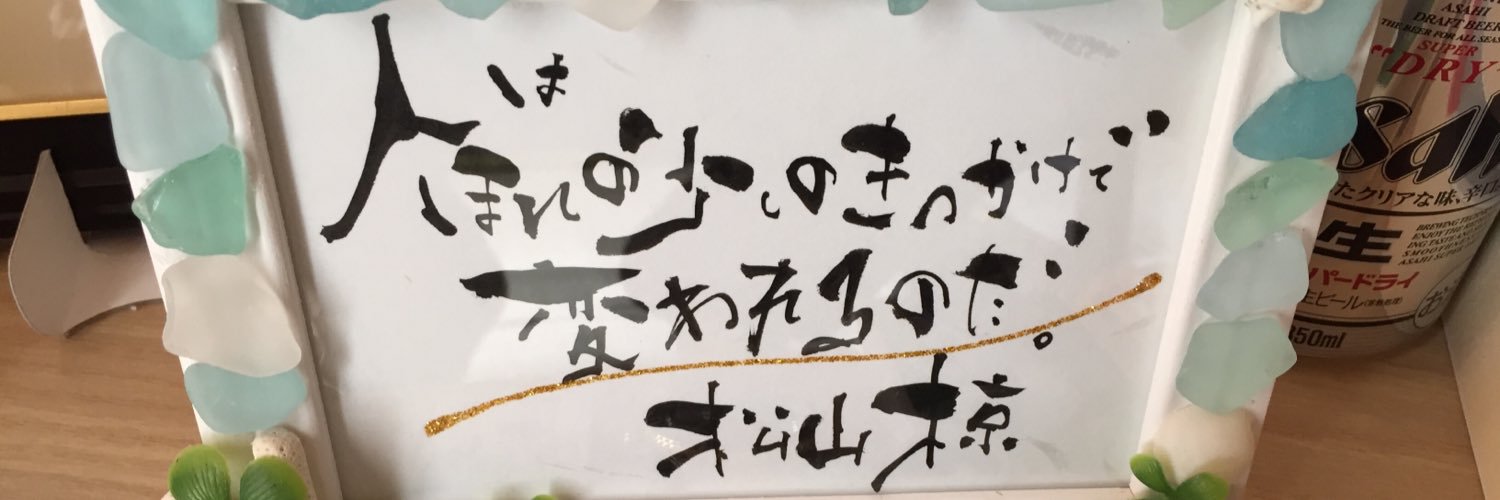 人は
ほんの少しのきっかけで、
変われるのだ。
松山椋
ASAHI
DRAFT BEER
THE BEER FOR ALL
SUPER
"DRY
Asah
たクリアな味、辛口
生
ASAHI SUPER
パードライ
生ビール(非熱処理)
お
350ml